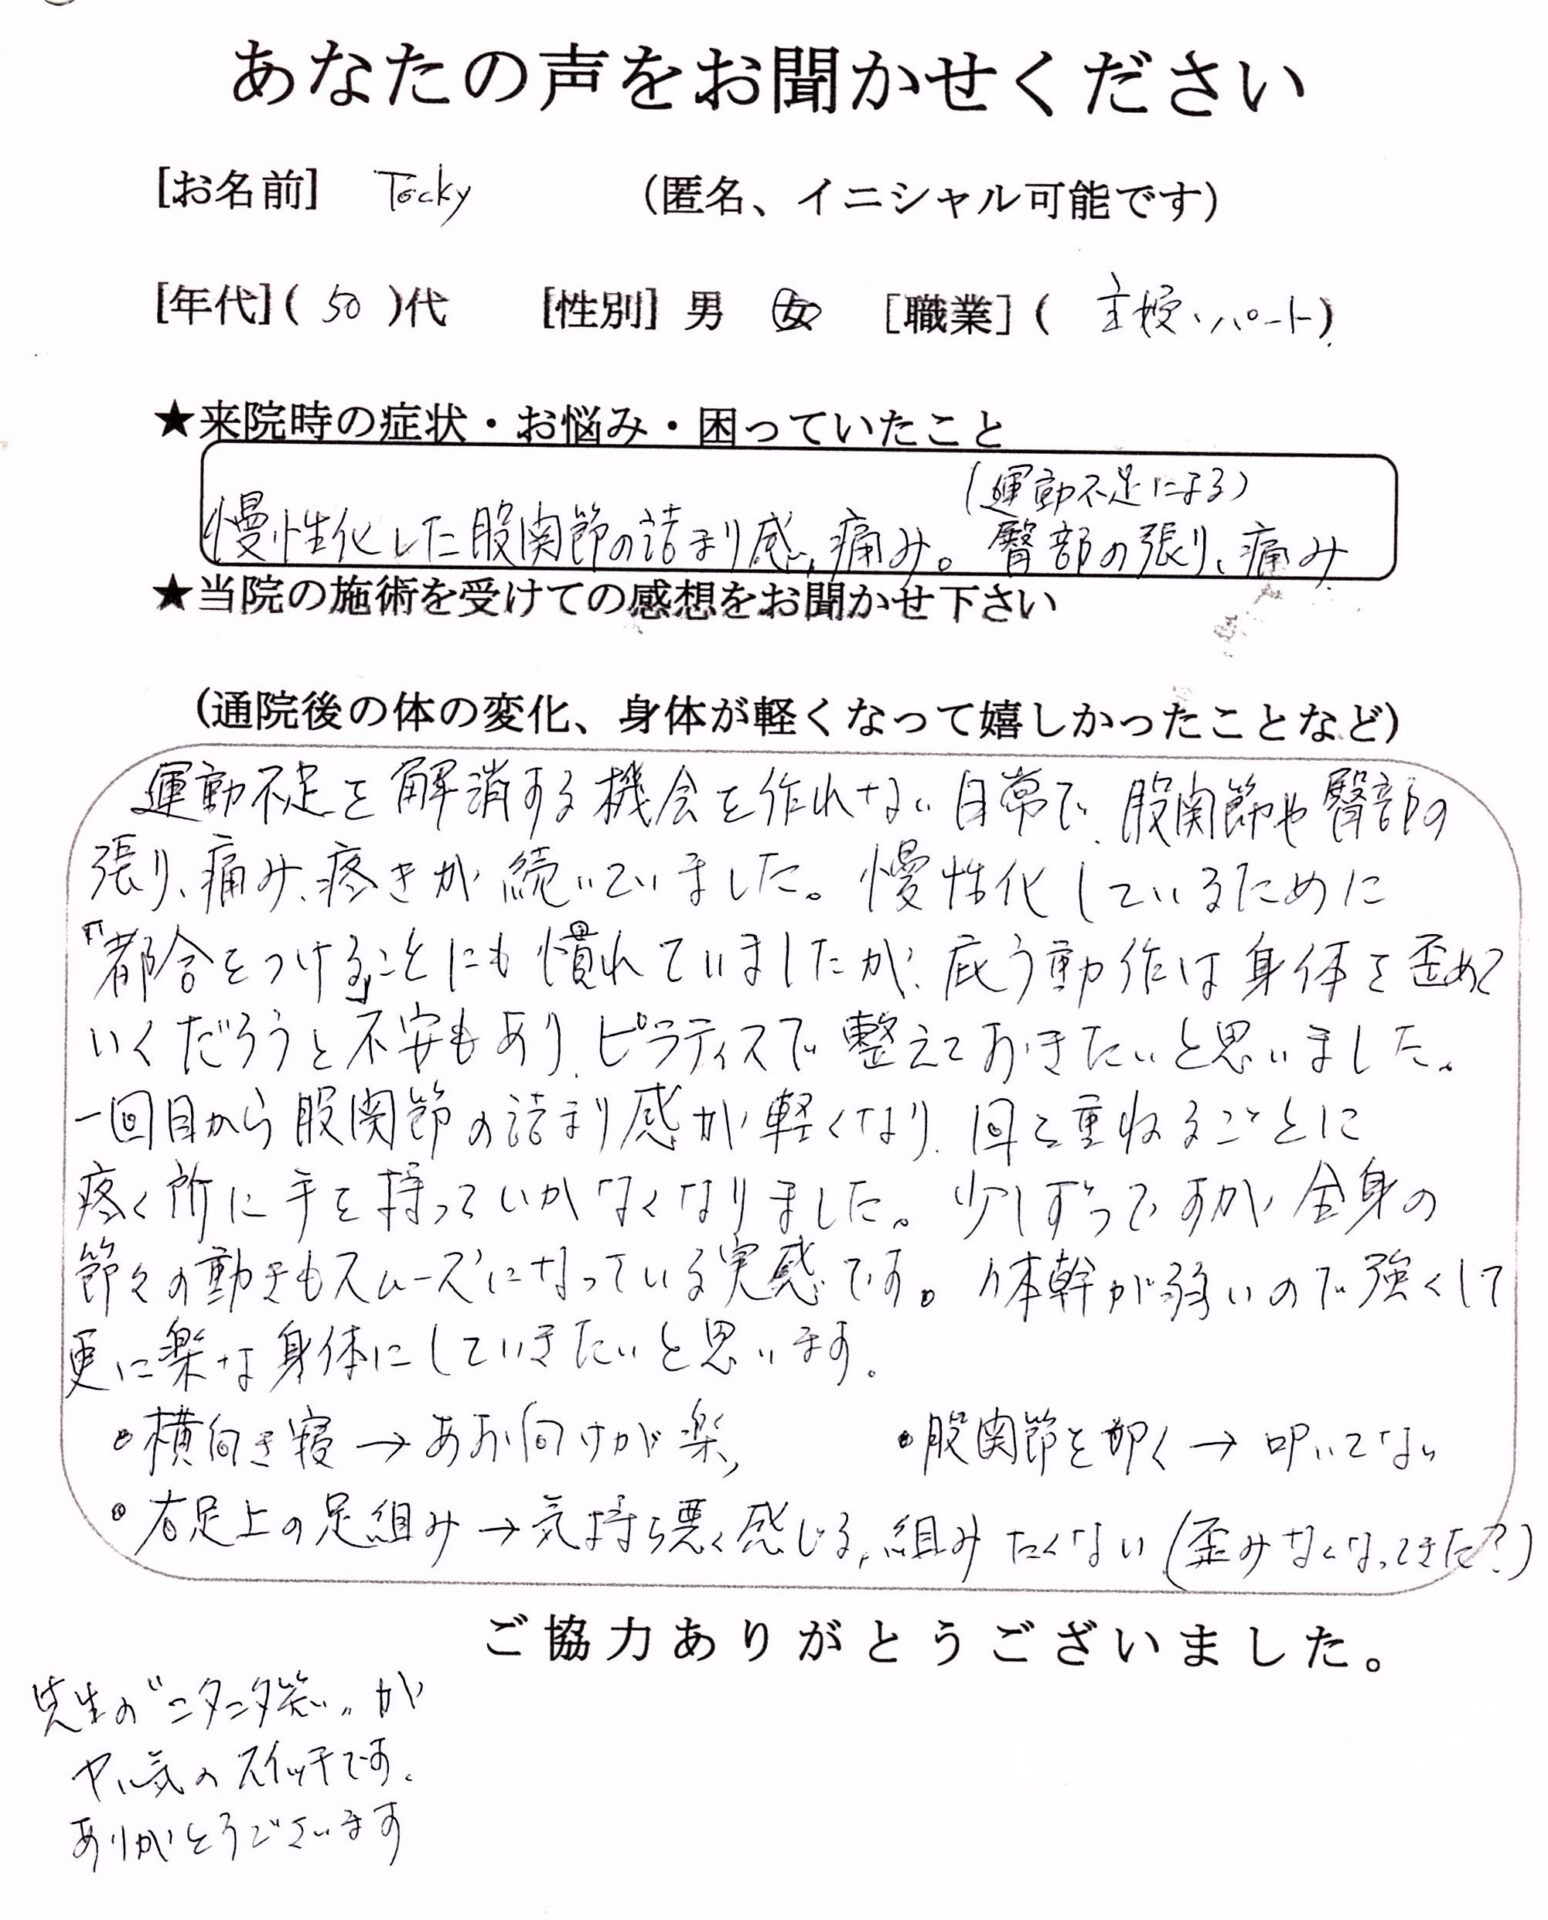 あなたの声をお聞かせください
[お名前] Tocky (匿名、イニシャル可能です)
[年代] ( 50 )代 [性別] 男 女 [職業] ( 主婦・パート)
★来院時の症状・お悩み・困っていたこと
(運動不足による)
慢性化した股関節の詰まり感、痛み。臀部の張り、痛み
★当院の施術を受けての感想をお聞かせ下さい
(通院後の体の変化、身体が軽くなって嬉しかったことなど)
運動不足を解消する機会を作れない日常で、股関節や臀部の
張り、痛み、疼きが続いていました。慢性化しているために
"都合をつける"ことにも慣れていましたが、庇う動作は身体を歪めて
いくだろうと不安もあり、ピラティスで整えておきたいと思いました。
一回目から股関節の詰まり感が軽くなり、回を重ねるごとに
疼く所に手を持っていかなくなりました。少しずつですが全身の
節々の動きもスムーズになっている実感です。体幹が弱いので強くして
更に楽な身体にしていきたいと思います。
•横向き寝→あお向けが楽、 •股関節を叩く→叩いてない
•右足上の足組み→気持ち悪く感じる、組みたくない(歪みなくなってきた?)
ご協力ありがとうございました。
先生の"ニタニタ笑い"が
ヤル気のスイッチです。
ありがとうございます